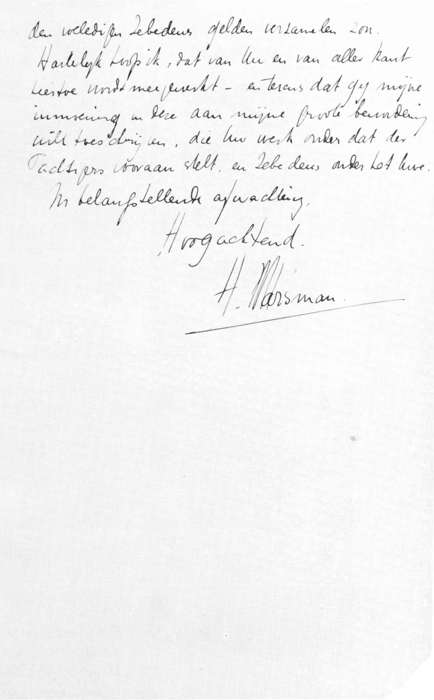 den volledigen Zebedeus gelden verzamelen zou.
Hartelijk hoop ik, dat van Uw en van aller kant
hiertoe wordt meegewerkt – en tevens dat gij mijne
inmenging in deze aan mijne groote bewondering
wilt toeschrijven, die Uw werk onder dat der
Tachtigers vooraan stelt, en Zebedeus onder het Uwe.
In belangstellende afwachting,
Hoogachtend.
H. Marsman.